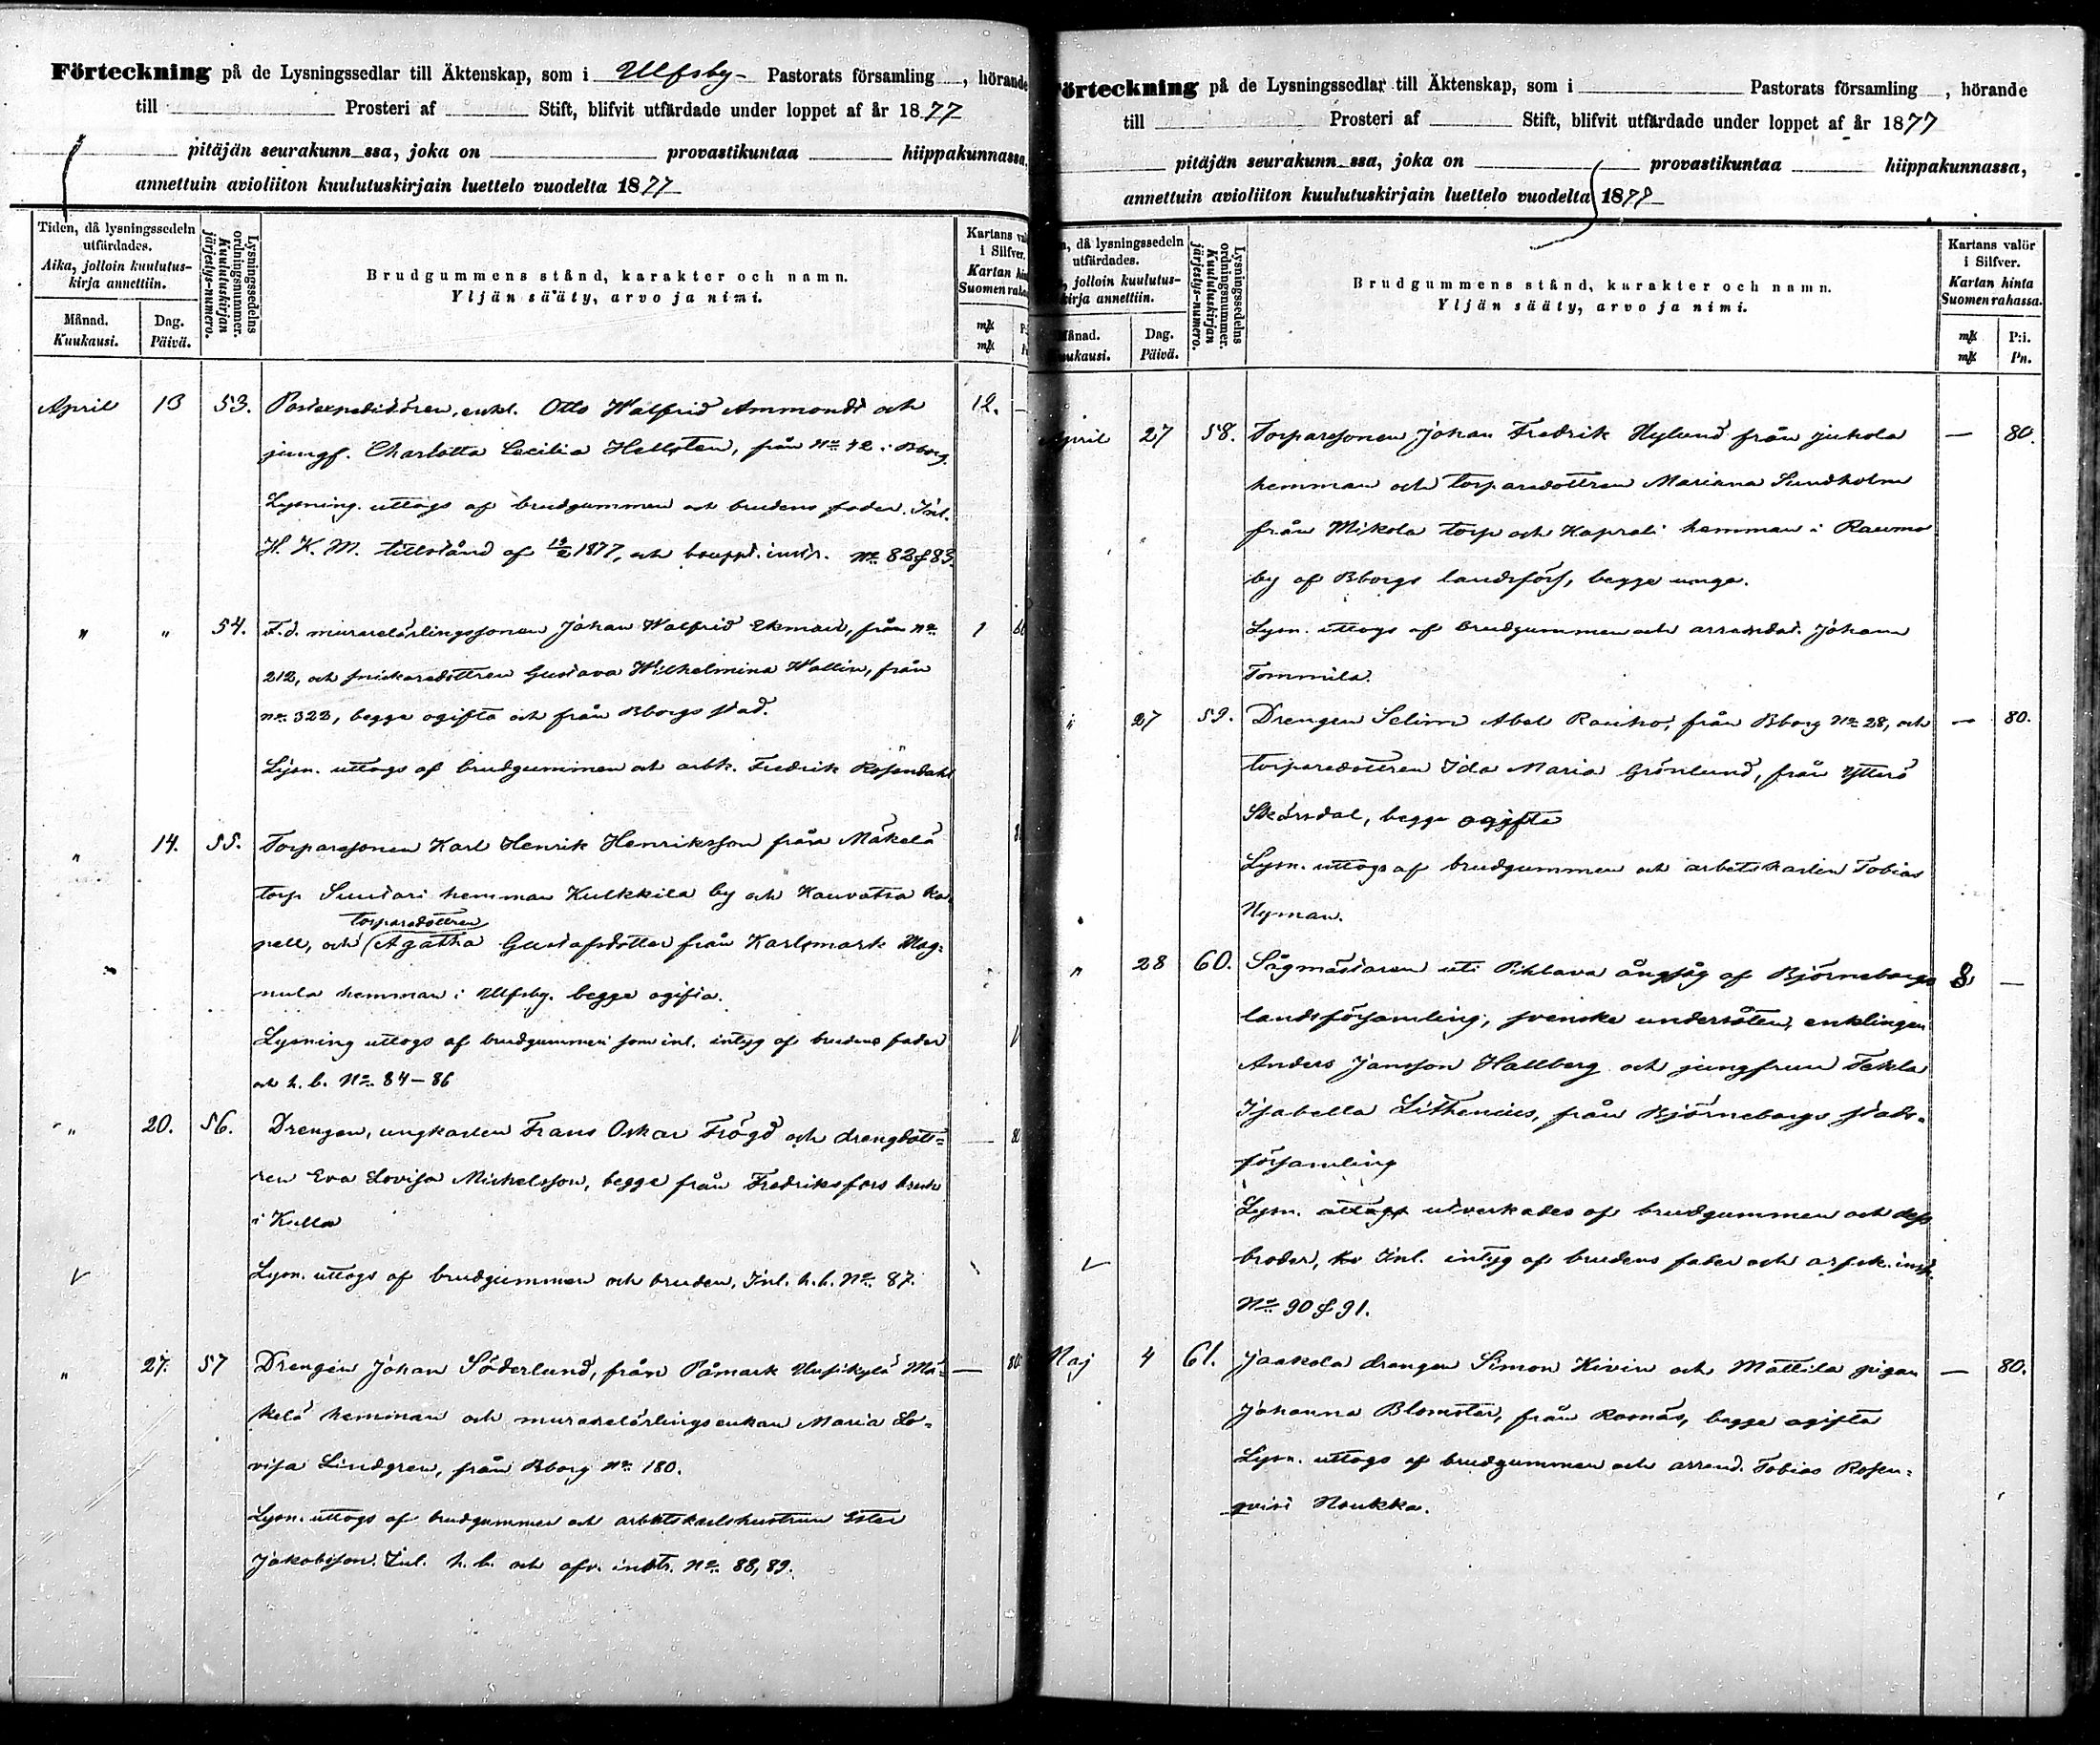 Förteckning på de Lysningssedlar till Äktenskap, som i Ulfsby- Pastorats församling , hörande
till Prosteri af Stift, blifvit utfärdade under loppet af år 1877
pitäjän seurakunn ssa, joka on provastikuntaa hiippakunnassa,
annettuin avioliiton kuulutuskirjain luettelo vuodelta 1877
Tiden, då lysningssedeln utfärdades.
Aika, jolloin kuulutuskirja annettiin.
Månad. Kuukausi.
Dag. Päivä.
Lysningssedelns ordningsnummer.
Kuulutuskirjan järjestys-numero.
Brudgummens stånd, karakter och namn.
Yljän sääty, arvo ja nimi.
Kartans
i Silfver.
Kartan
Suomen
mk
mk
April 13 53. Postexpeditören, enkl. Otto Walfrid Ammondt och 12. —
jungf. Charlotta Cecilia Hellsten, från No 42 i Bborg.
Lysning. uttogs af brudgummen och brudens fader. Inl.
H. K. M. tillstånd af 13/2 1877, och bouppt. instr. No 82 & 83.
" " 54. F. d. murarelärlingssonen Johan Walfrid Ekman, från no 1
212, och snickaredottren Gustava Wilhelmina Wallin, från
no 323, begge ogifta och från Bborgs stad.
Lysn. uttogs af brudgummen och arbk. Fredrik Rosendahl
" 14. 55. Torparesonen Karl Henrik Henriksson från Mäkelä
torp Suntari hemman Kulkkila by och Kauvatsa ka-
torparedottren
pell, och Agatha Gustafsdotter från Karlsmark Mag-
nula hemman i Ulfsby. begge ogifta.
Lysning uttogs af brudgummen som inl. intyg af brudens fader
och h. b. No 84-86
" 20. 56. Drengen, ungkarlen Frans Oskar Frögd och drengdott-
ren Eva Lovisa Michelsson, begge från Fredriksfors bruk
i Kulla
Lysn. uttogs af brudgummen och bruden, Inl. h. b. No 87.
" 27. 57 Drengen Johan Söderlund, från Påmark Uusikylä Mä- — 80
kelä hemman och murarelärlingsenkan Maria Lo-
visa Lindgren, från Bborg No 180.
Lysn. uttogs af brudgummen och arbetskarlshustrun Ester
Jakobsson. Inl. h. b. och afv. instr. No 88, 89.
Förteckning på de Lysningssedlar till Äktenskap, som i Pastorats församling , hörande
till Prosteri af Stift, blifvit utfärdade under loppet af år 1877
pitäjän seurakunn ssa, joka on provastikuntaa hiippakunnassa,
annettuin avioliiton kuulutuskirjain luettelo vuodelta 1877
då lysningssedeln utfärdades.
jolloin kuulutuskirja annettiin.
Månad. Kuukausi.
Dag. Päivä.
Lysningssedelns ordningsnummer.
Kuulutuskirjan järjestys-numero.
Brudgummens stånd, karakter och namn.
Yljän sääty, arvo ja nimi.
Kartans valör
i Silfver.
Kartan hinta
Suomen rahassa.
mk P:i.
mk Pn.
April 27 58. Torparesonen Johan Fredrik Nylund från Juhola — 80.
hemman och torparedottren Mariana Sundholm
från Mikola torp och Kaprali hemman i Raumo
by af Bborgs landsförs, begge unga.
Lysn. uttogs af brudgummen och arrendat. Johann
Tommila.
" 27 59. Drengen Selim Abel Rauho, från Bborg No 28, och — 80.
torparedottren Ida Maria Grönlund, från Ytterö
begge ogifte
Lysn. uttogs af brudgummen och arbetskarlen Tobias
Nyman.
" 28 60. Sågmästaren uti Pihlava ångsåg af Björneborgs 8 —
landsförsamling, svenske undersåten, enklingen
Anders Jansson Hallberg och jungfrun Tekla
Isabella Lithenius, från Björneborgs stads-
församling
Lysn. uttogs utverkades af brudgummen och dess
broder, Inl. intyg af brudens fader och
No 90 & 91.
Maj 4 61. Jaakola drengen Simon Kivin och Mattila pigan — 80.
Johanna Blomster, från Rosnäs, begge ogifta
Lysn. uttogs af brudgummen och arrend. Tobias Rosen-
qvist Noukka.